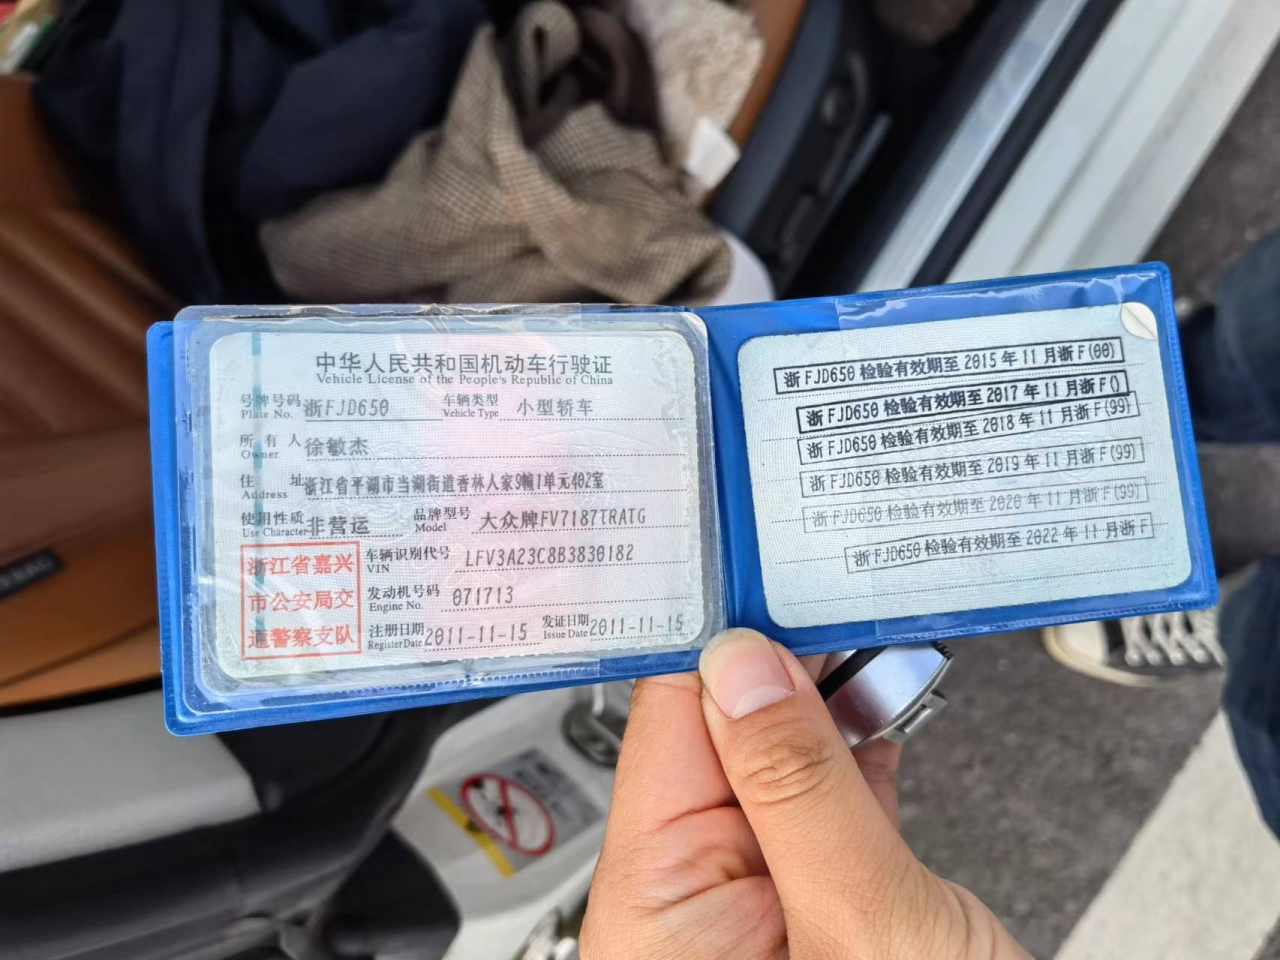 中华人民共和国机动车行驶证
Vehicle License of the People's Republic of China
号牌号码 浙FJD650 车辆类型 小型轿车
Plate No. Vehicle Type
所有人 徐敏杰
Owner
住址 浙江省平湖市当湖街道香林人家9幢1单元402室
Address
使用性质 非营运 品牌型号 大众牌FV7187TRATG
Use Character Model
浙江省嘉兴
市公安局交
通警察支队
车辆识别代号 LFV3A23C8B3830182
VIN
发动机号码 071713
Engine No.
注册日期 2011-11-15 发证日期 2011-11-15
Register Date Issue Date
浙FJD650检验有效期至2015年11月浙F(00)
浙FJD650检验有效期至2017年11月浙F()
浙FJD650检验有效期至2018年11月浙F(99)
浙FJD650检验有效期至2019年11月浙F(99)
浙FJD650检验有效期至2020年11月浙F(99)
浙FJD650检验有效期至2022年11月浙F